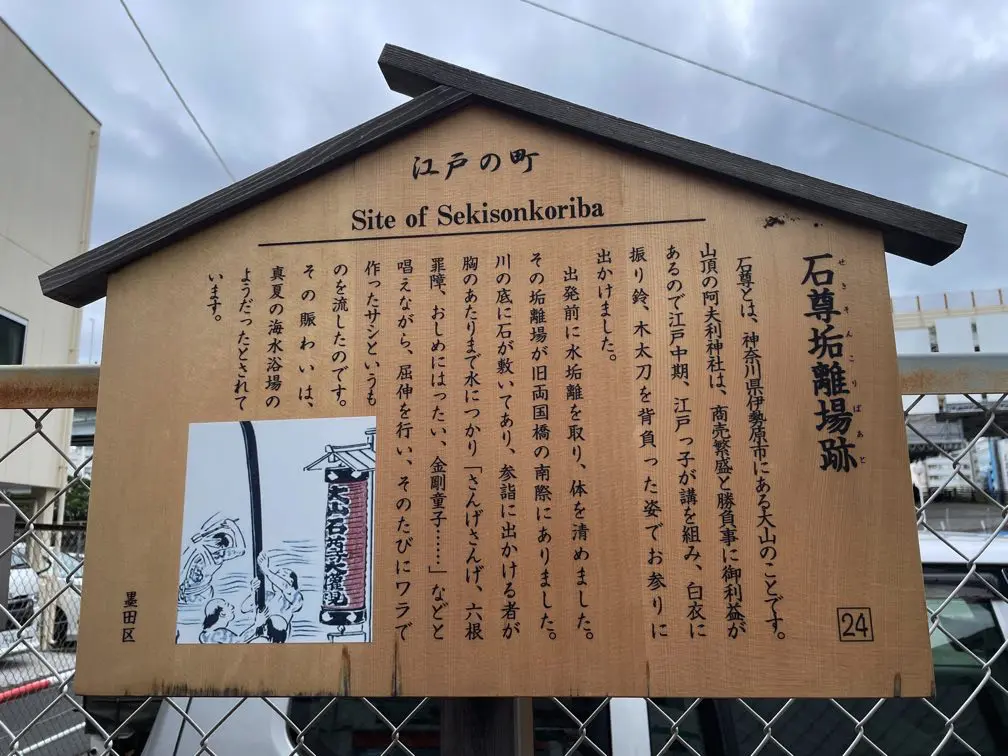 江戸の町
Site of Sekisonkoriba
石尊垢離場跡
せきそんこりばあと
石尊とは、神奈川県伊勢原市にある大山のことです。
山頂の阿夫利神社は、商売繁盛と勝負事に御利益が
あるので江戸中期、江戸っ子が講を組み、白衣に
振り鈴、木太刀を背負った姿でお参りに
出かけました。
出発前に水垢離を取り、体を清めました。
その垢離場が旧両国橋の南際にありました。
川の底に石が敷いてあり、参詣に出かける者が
胸のあたりまで水につかり「さんげさんげ、六根
罪障、おしめにはったい、金剛童子……」などと
唱えながら、屈伸を行い、そのたびにワラで
作ったサシというも
のを流したのです。
その賑わいは、
真夏の海水浴場の
ようだったとされて
います。
墨田区
24